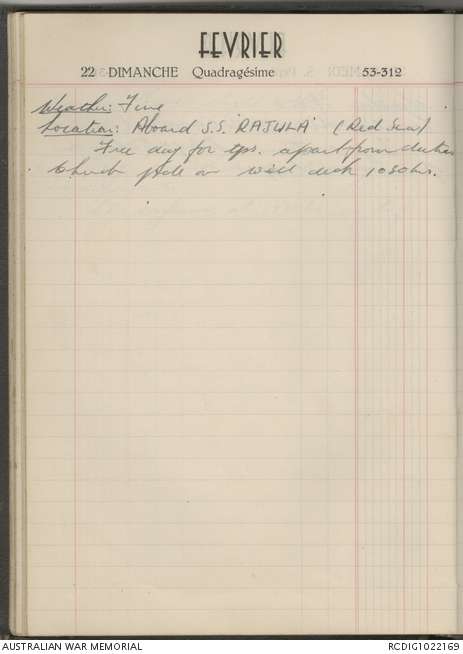 FEVRIER
22 DIMANCHE Quadragésime 53-312
Weather: Fine
Location: Aboard S.S. "RAJULA" (Red Sea)
Free day for tps. apart from duties
Church pde on well deck 1030 hrs.
AUSTRALIAN WAR MEMORIAL RCDIG1022169